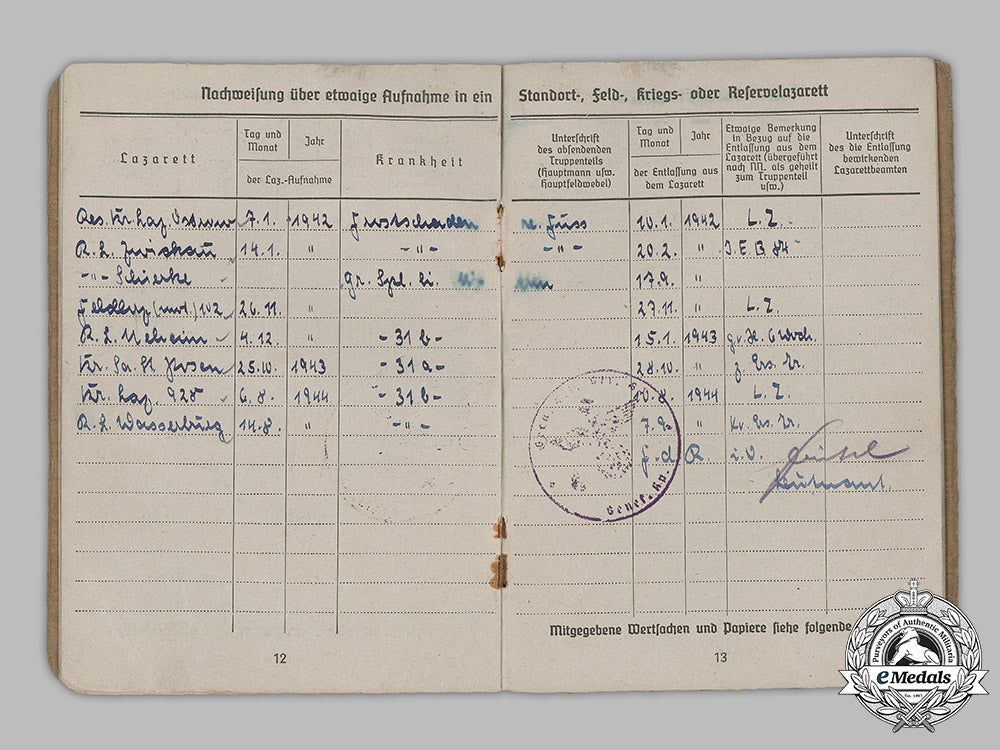 Nachweisung über etwaige Aufnahme in ein Standort-, Feld-, Kriegs- oder Reservelazarett
Lazarett
Tag und Monat
Jahr
der Laz.-Aufnahme
Krankheit
Unterschrift des absendenden Truppenteils (Hauptmann usw. Hauptfeldwebel)
Tag und Monat
Jahr
der Entlassung aus dem Lazarett
Etwaige Bemerkung in Bezug auf die Entlassung aus dem Lazarett (übergeführt nach NN. als geheilt zum Truppenteil usw.)
Unterschrift des die Entlassung bewirkenden Lazarettbeamten
Res. Kr. Laz. 7.1. 1942 Frostschaden re. Fuss 10.1. 1942 L.Z.
R. L. Zwickau 14.1. " -"- -"- 20.2. " J.E.B. 84
-"- Schierke Gr. Spl. li. 17.9. "
Feldlaz. (mot.) 102 26.11. " 27.11. " L.Z.
R. L. Neheim 4.12. " -31b- 15.1. 1943 g.v.H. 6 Woch.
Kr. Sa. St. 25.10. 1943 -31a- 28.10. " z. Ers. Tr.
Kr. Laz. 928 6.8. 1944 -31b- 10.8. 1944 L.Z.
R. L. Wasserburg 14.8. " -"- 7.9. " Kr. Ers. Tr.
F.d.R. i.V.
Leutnant.
Genes. Kp.
Mitgegebene Wertsachen und Papiere siehe folgende
12
13
Purveyors of Authentic Militaria
eMedals